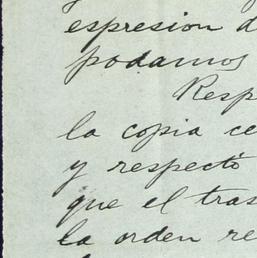 espresion d
podamos
Resp
la copia ce
y respectó
que el tras
la orden re